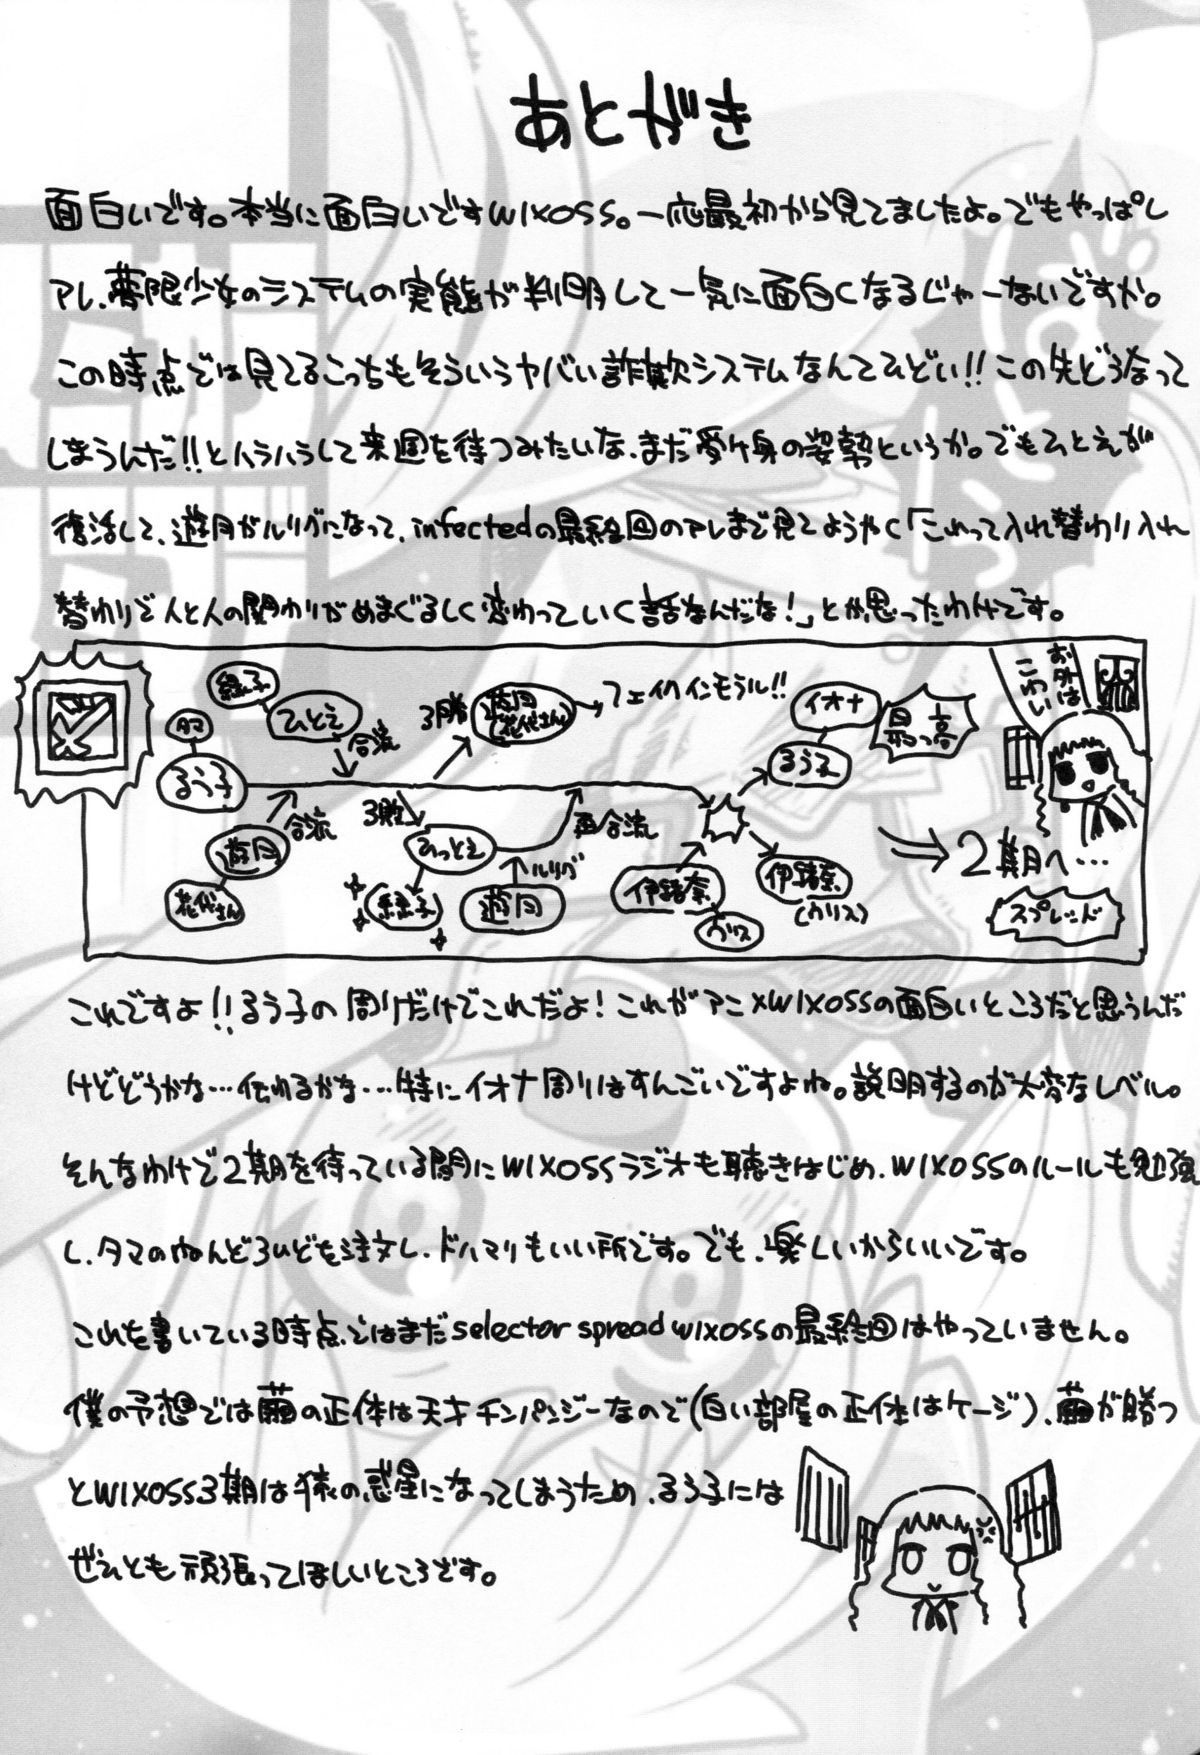 あとがき
面白いです。本当に面白いですWIXOSS。一応最初から見てましたよ。でもやっぱし
アレ、夢限少女のシステムの実態が判明して一気に面白くなるじゃーないですか。
この時点では見てるこっちもそういうヤバい詐欺システムなんてひどい!!この先どうなって
しまうんだ!!とハラハラして来週を待つみたいな、まだ受け身の姿勢というか。でもひとえが
復活して、遊月がルリグになって、infectedの最終回のアレまで見てようやく「これって入れ替わり入れ
替わりで人と人の関わりがめまぐるしく変わっていく話なんだな!」とか思ったわけです。
タマ
るう子
緑子
ひとえ
合流
花代さん
遊月
合流
3勝
遊月(花代さん)
フェイクインモラル!!
3敗
ひとえ
緑子
遊月
ルリグ
再合流
伊緒奈
ウリス
イオナ
るう子
最っ高
伊緒奈(ウリス)
2期へ…
スプレッド
お外は
こわい
これですよ!!るう子の周りだけでこれだよ!これがアニメWIXOSSの面白いところだと思うんだ
けどどうかな…伝わるかな…特にイオナ周りはすんごいですよね。説明するのが大変なレベル。
そんなわけで2期を待っている間にWIXOSSラジオも聴きはじめ、WIXOSSのルールも勉強
し、タマのねんどろいどを注文し、ドハマりもいい所です。でも、楽しいからいいです。
これを書いている時点ではまだselector spread wixossの最終回はやっていません。
僕の予想では繭の正体は天才チンパンジーなので(白い部屋の正体はケージ)、繭が勝つ
とWIXOSS3期は猿の惑星になってしまうため、るう子には
ぜひとも頑張ってほしいところです。